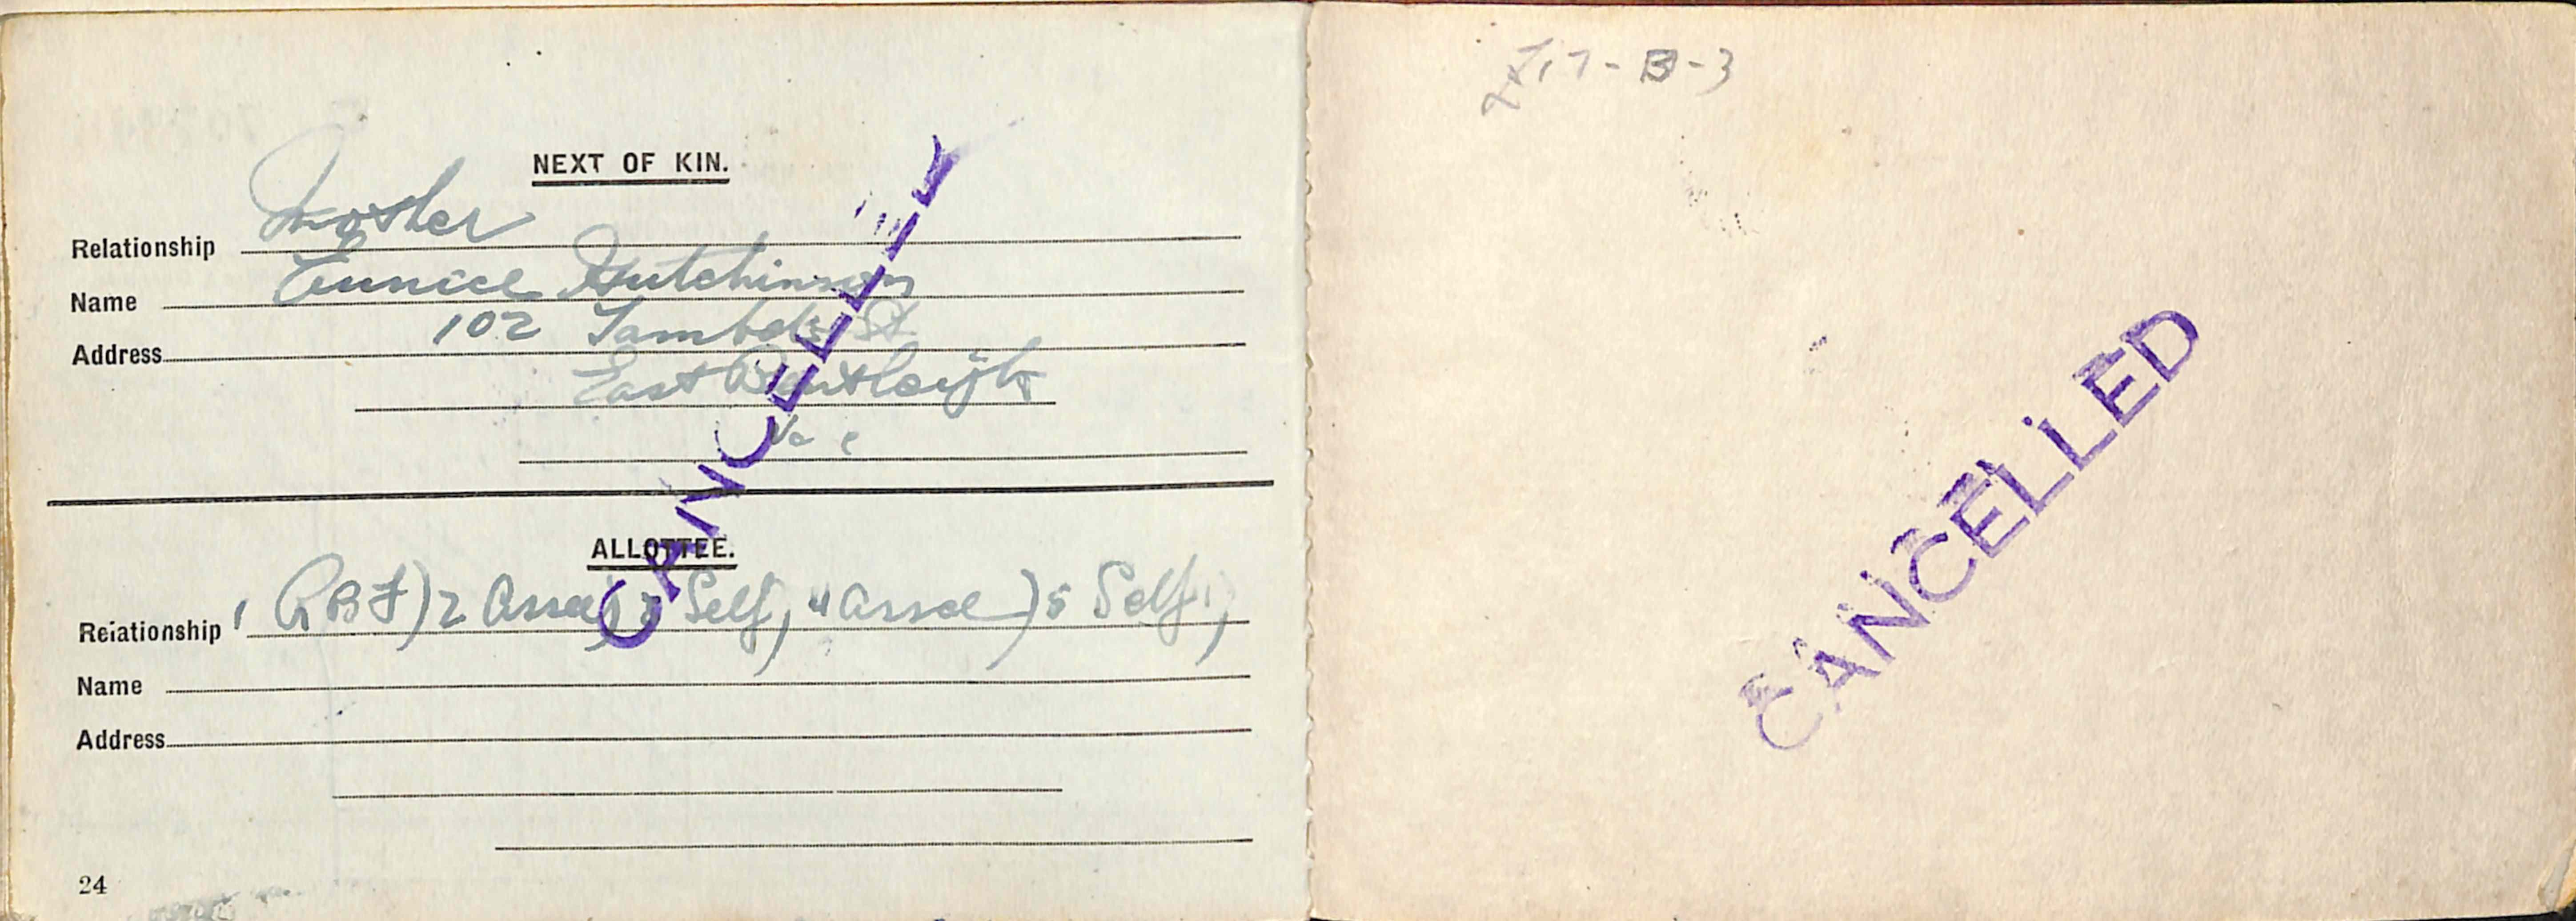 NEXT OF KIN.
Relationship Mother
Name Eunice Hutchinson
Address 102 St
East
ALLOTTEE.
Relationship 1 RBF) 2 Asse) 3 Self, 4 Asse) 5 Self,
Name
Address
24
CANCELLED
17-B-3
CANCELLED